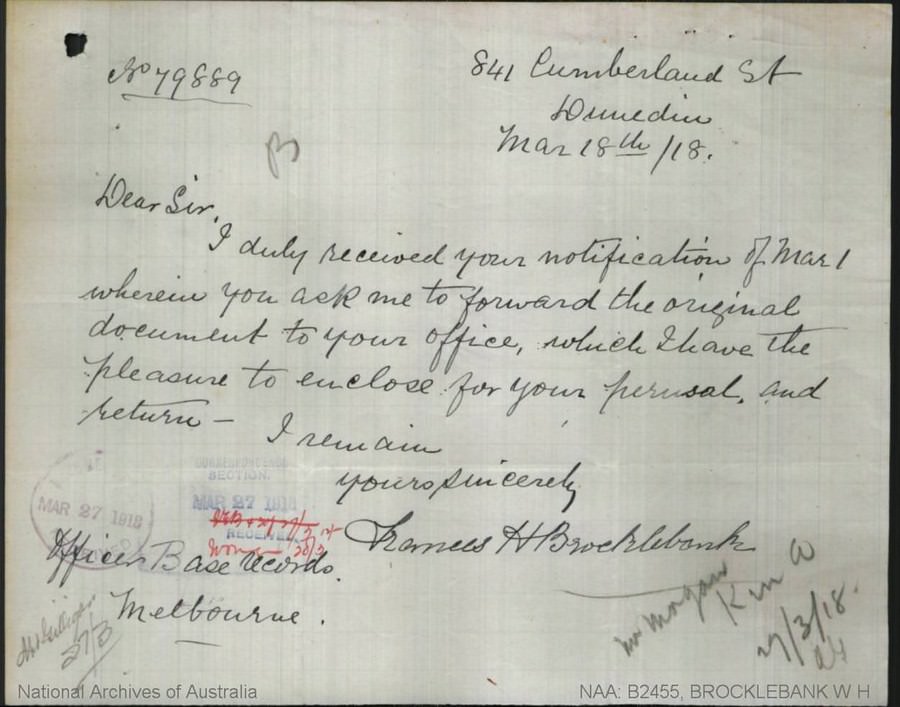 No 79889
841 Cumberland St
Dunedin
Mar 18th/18.
B
Dear Sir,
I duly received your notification of Mar 1
wherein you ask me to forward the original
document to your office, which I have the
pleasure to enclose for your perusal, and
return –
I remain
yours sincerely
Frances H Brocklebank
CORRESPONDENCE
SECTION.
MAR 27 1918
RECEIVED
MAR 27 1918
Officer Base records.
Melbourne.
27/3
Mr Morgan
27/3/18.
National Archives of Australia
NAA: B2455, BROCKLEBANK W H